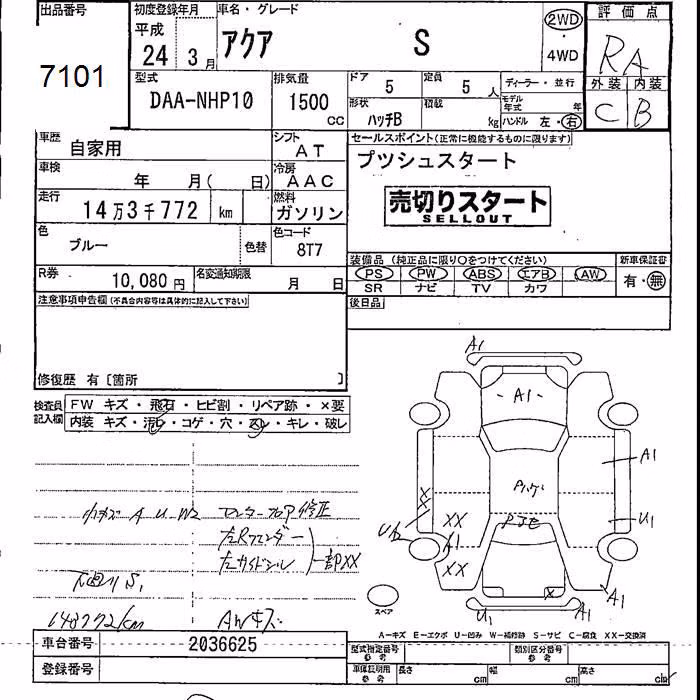 出品番号 初度登録年月 車名・グレード 評価点
7101 平成 24 3月 アクア S 2WD ・ 4WD RA
外装 内装
C B
型式 排気量 ドア 5 定員 5人 ディーラー・並行
DAA-NHP10 1500 CC 形状 ハッチB 積載 kg モデル年式 年
ハンドル 左・右
車歴 自家用 シフト AT セールスポイント(正常に機能するものに限ります)
車検 年 月( 日) 冷房 AAC プッシュスタート
走行 14万3千772 km 燃料 ガソリン 売切りスタート
SELLOUT
色 ブルー 色替 色コード 8T7
装備品 (純正品に限り○をつけてください) 新車保証書
R券 10,080円 名変通知期限 月 日 PS PW ABS エアB AW 有・無
SR ナビ TV カワ
注意事項申告欄(不具合内容等は具体的に記入して下さい) 後日品
修復歴 有〔箇所 〕
検査員記入欄 FW キズ・飛石・ヒビ割・リペア跡・×要
内装 キズ・汚レ・コゲ・穴・スレ・キレ・破レ
A1
A1
A1
XX
A1
XX
U1
A1
U1
A1
小キズ A U W2 センターフロア修正
左Rフェンダー
左サイドシル 一部XX
下廻り S1
143772km AWキズ
スペア
A-キズ E-エクボ U-凹み W-補修跡 S-サビ C-腐食 XX-交換済
車台番号 2036625 型式指定番号 参考 類別区分番号 参考
登録番号 車庫証明用 参考 長さ cm 幅 cm 高さ cm